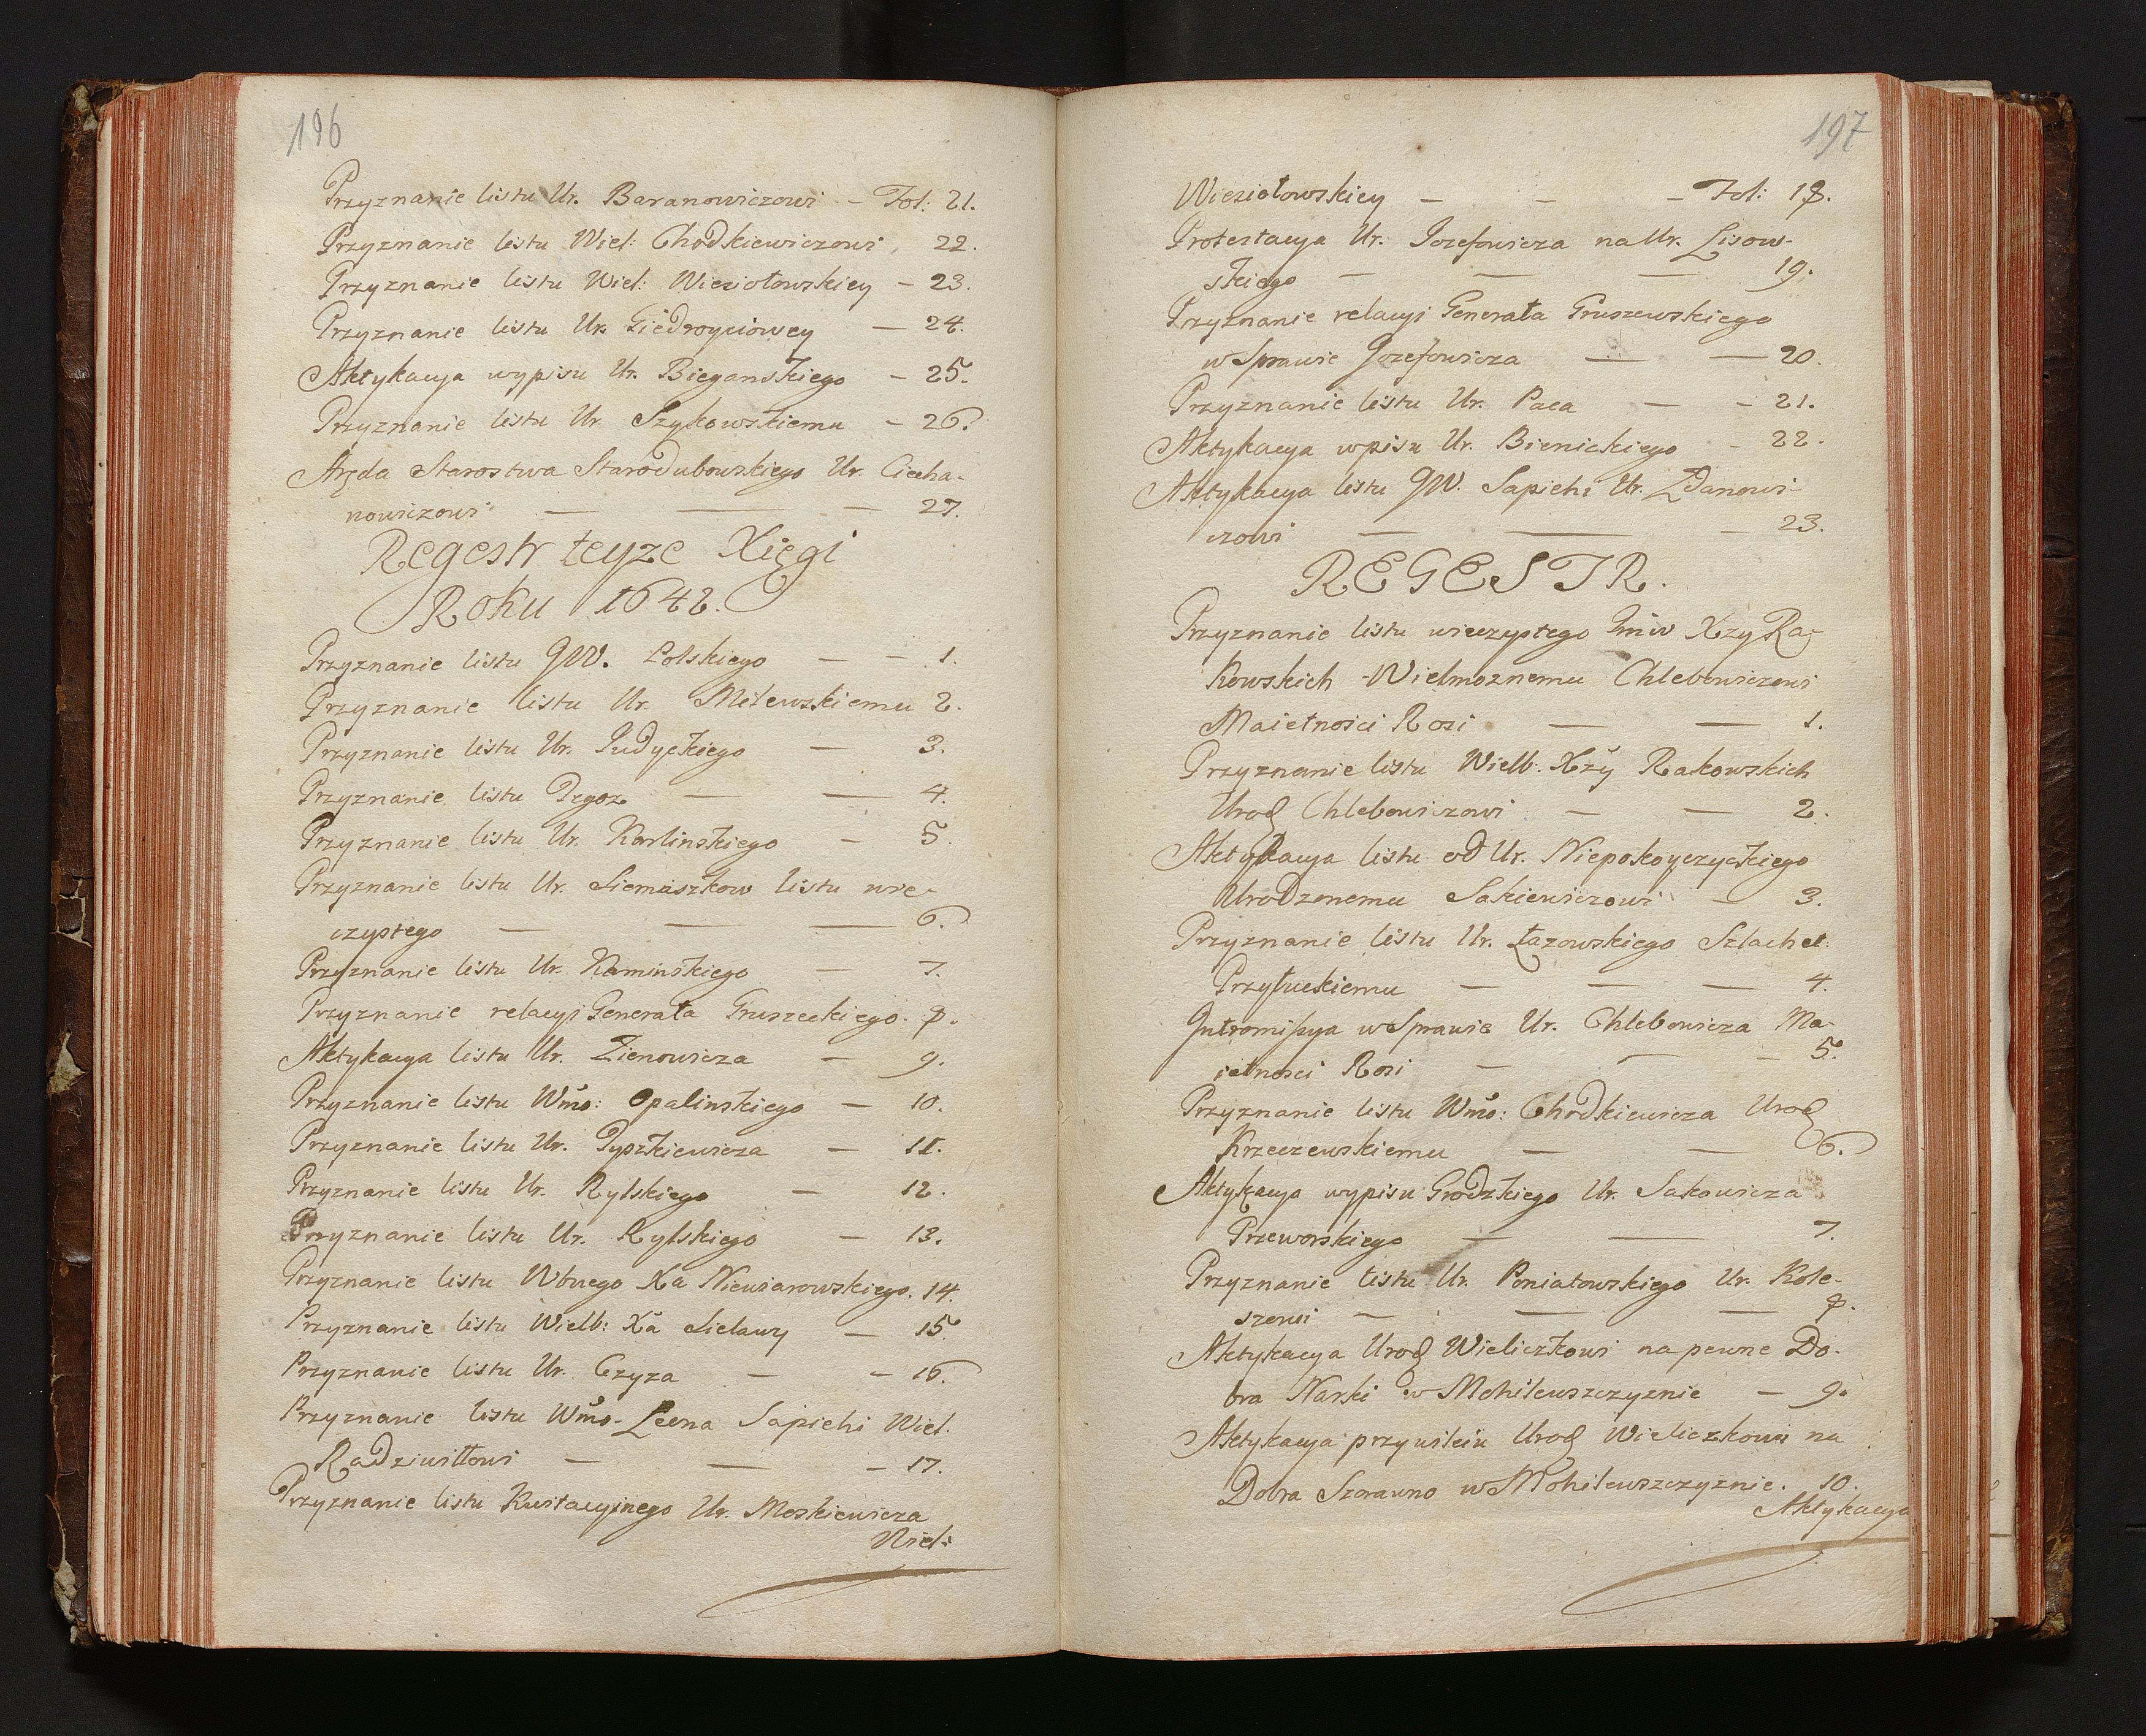 196
Przyznanie listu Ur. Baranowiczowi – Fol: 21.
Przyznanie listu Wiel: Chodkiewiczowi, 22.
Przyznanie listu Wiel: Wiesiołowskiey – 23.
Przyznanie listu Ur. Giedroyciowey — 24.
Aktykacya wypisu Ur. Bieganskiego – 25.
Przyznanie listu Ur. Szykowskiemu – 26.
Aręda Starostwa Starodubowskiego Ur. Ciecha-
nowiczowi — — — 27.
Regestr teyze Xięgi
Roku 1642.
Przyznanie listu JW. Lolskiego — — 1.
Przyznanie listu Ur. Milewskiemu 2.
Przyznanie listu Ur. Judyckiego — 3.
Przyznanie listu — — 4.
Przyznanie listu Ur. Karlinskiego — 5.
Przyznanie listu Ur. Siemaszkow listu wie-
czystego — — — 6.
Przyznanie listu Ur. Kaminskiego — 7.
Przyznanie relacyi Generała Gruszeckiego. 8.
Aktykacya listu Ur. Zienowicza — 9.
Przyznanie listu Wmo: Opalinskiego — 10.
Przyznanie listu Ur. Tyszkiewicza — 11.
Przyznanie listu Ur. Rylskiego — 12.
Przyznanie listu Ur. Rylskiego — 13.
Przyznanie listu Wbnego Xa Niewiarowskiego. 14.
Przyznanie listu Wielb: Xa Sielawy — 15.
Przyznanie listu Ur. Czyza — – 16.
Przyznanie listu Wmo. Leona Sapiehi Wiel.
Radziwiłłowi — — – 17.
Przyznanie listu Kwitacyinego Ur. Moskiewicza
Wiel:
197
Wiesiołowskiey – – – Fol: 18.
Protestacya Ur. Jozefowicza na Ur. Lisow-
skiego — — — 19.
Przyznanie relacyi Generała Gruszewskiego
w Sprawie Jozefowicza — — 20.
Przyznanie listu Ur. Paca — – 21.
Aktykacya wpisu Ur. Bienickiego – 22.
Aktykacya listu JW. Sapiehi Ur. Zdanowi-
czowi — — – 23.
REGESTR.
Przyznanie listu wieczystego Imw Xzy Ra-
kowskich Wielmoznemu Chlebowiczowi
Maietnosci Rosi — — 1.
Przyznanie listu Wielb: Xzy Rakowskich
Urod Chlebowiczowi — — 2.
Aktykacya listu od Ur. Niepokoyczyckiego
Urodzonemu Sakiewiczowi – 3.
Przyznanie listu Ur. Łazowskiego Szlachet:
Przyłuckiemu — — — 4.
Intromissya w Sprawie Ur. Chlebowicza Ma-
ietnosci Rosi — — – 5.
Przyznanie listu Wmo: Chodkiewicza Urod
Krzeczewskiemu — — 6.
Aktykacya wypisu Grodzkiego Ur. Sakowicza
Przeworskiego — — 7.
Przyznanie listu Ur. Poniatowskiego Ur. Kole-
szowi — — — 8.
Aktykacya Urod Wieliczkowi na pewne Do-
bra Narki w Mohilewszczyznie — 9.
Aktykacya przywileiu Urod Wieliczkowi na
Dobra Szorawno w Mohilewszczyznie. 10.
Aktykacya